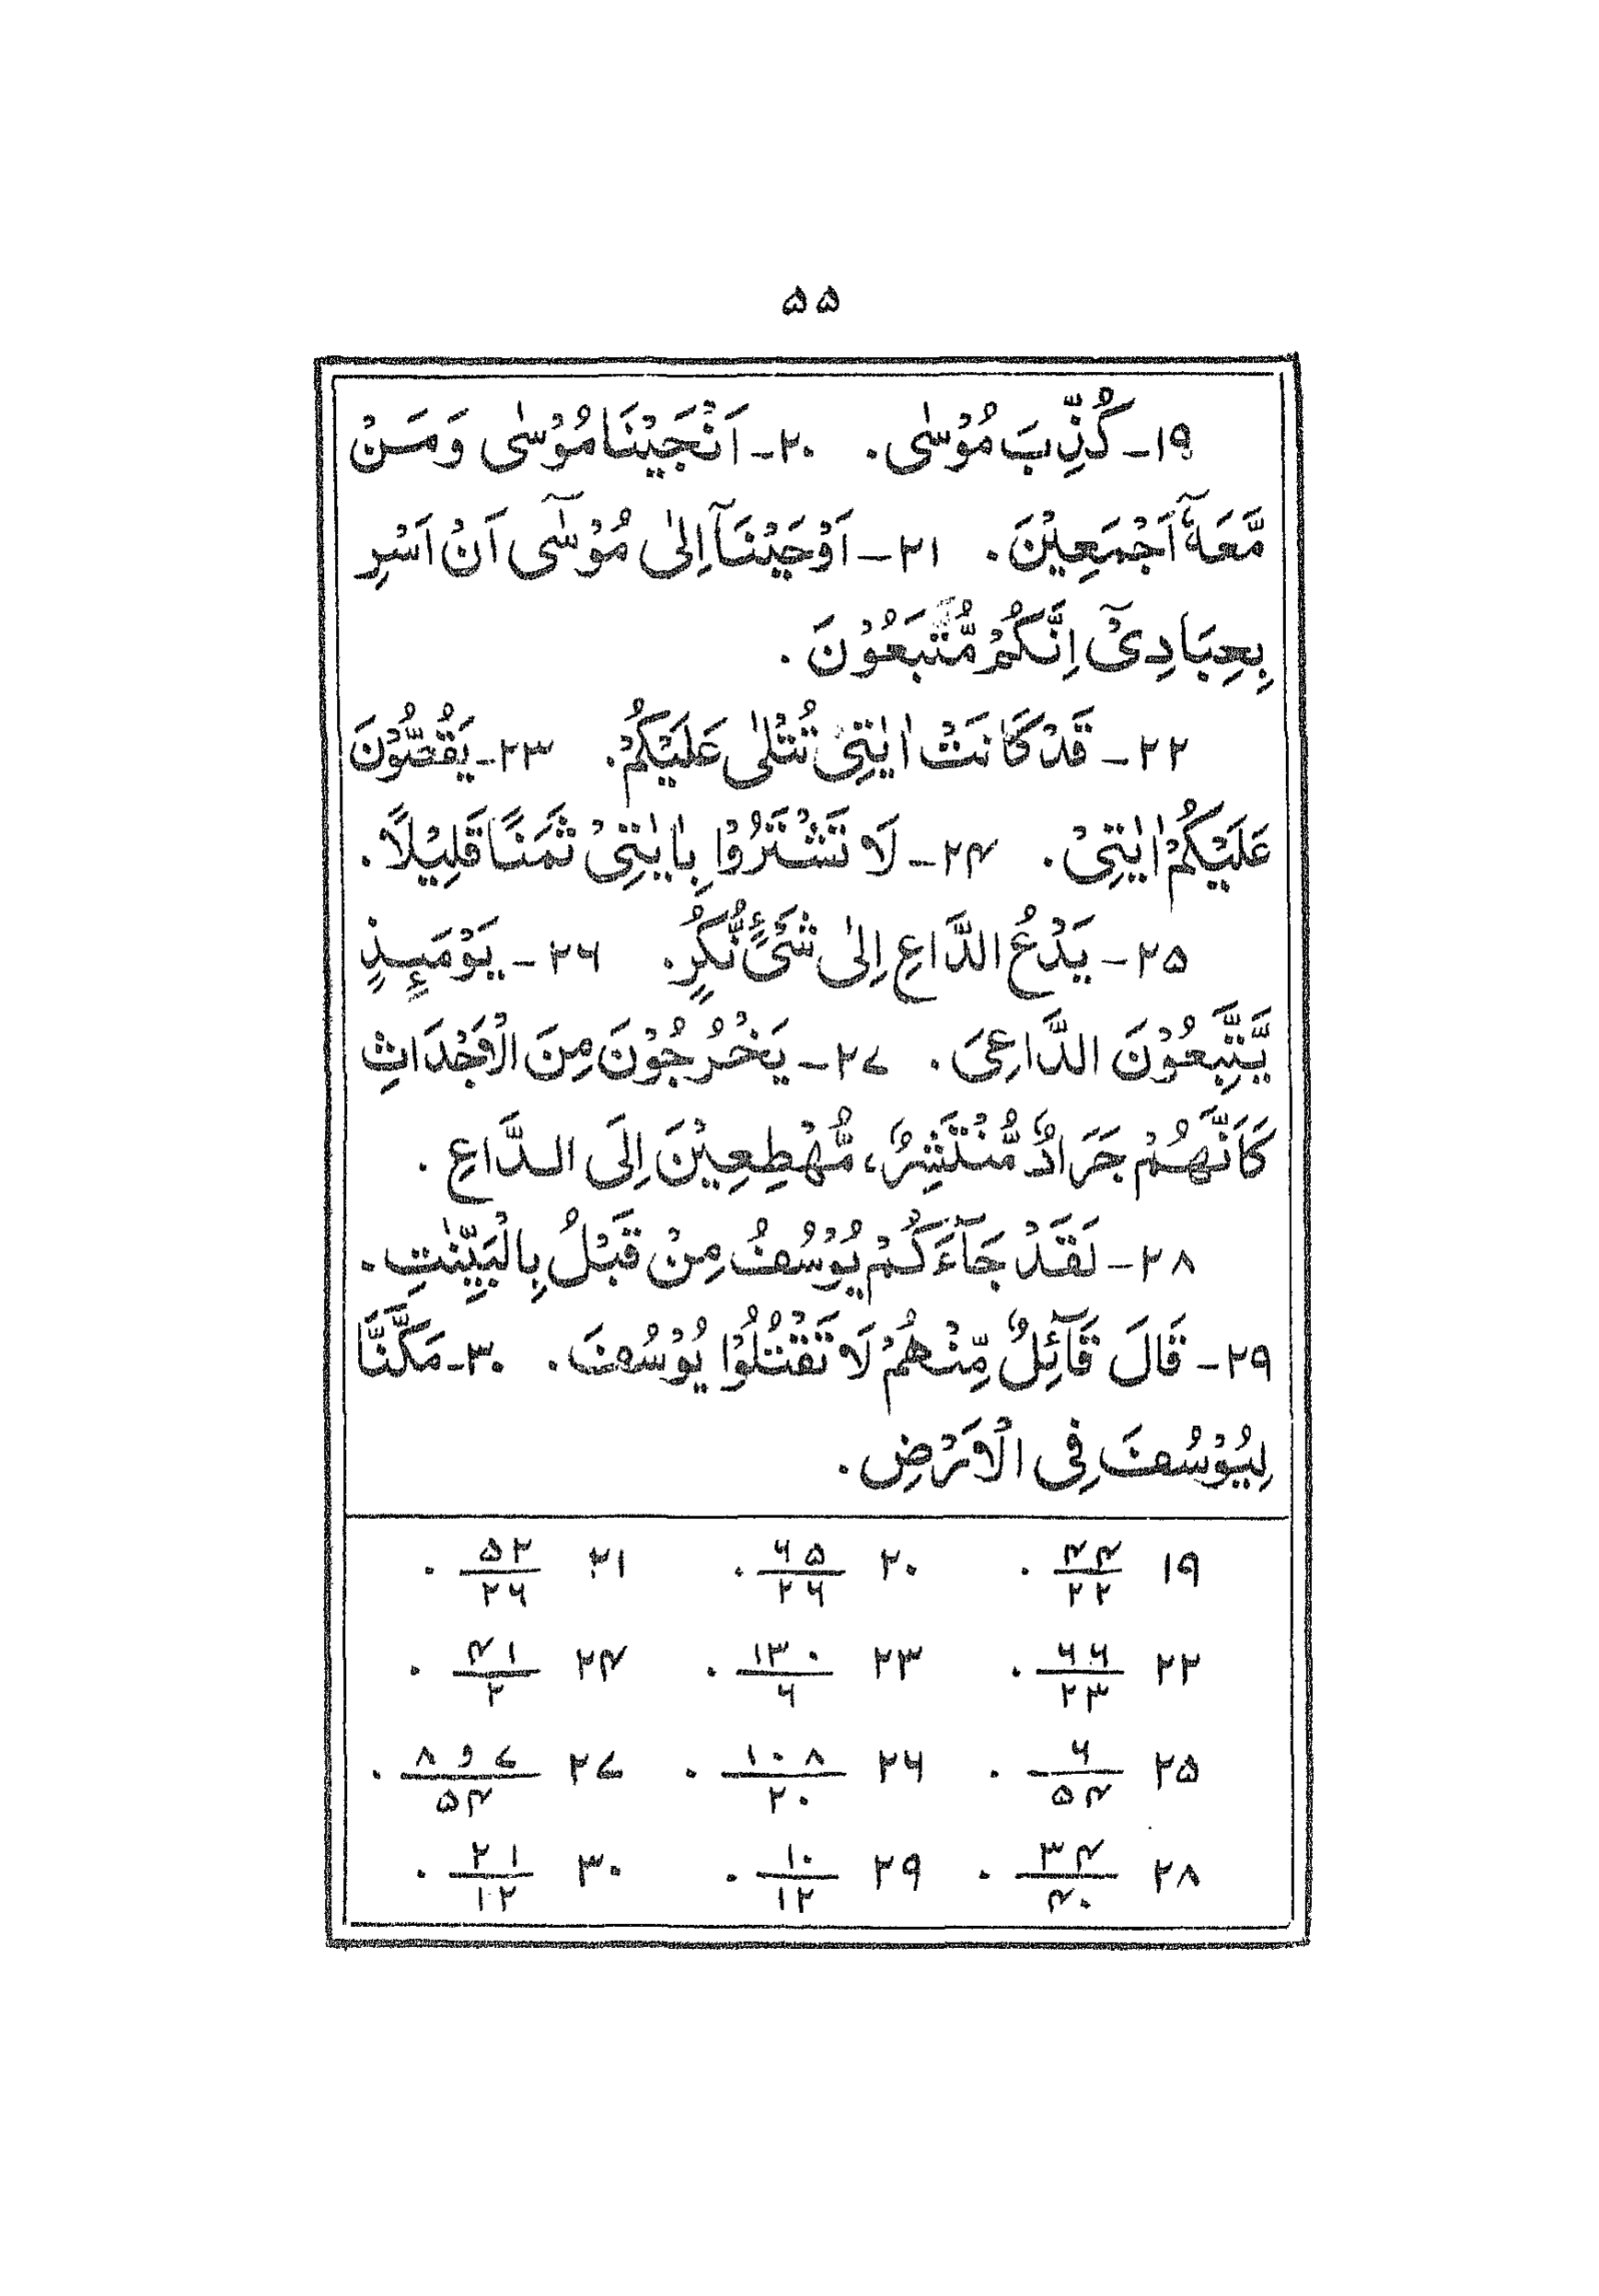 ۵۵
۱۹- كُذِّبَ مُوْسٰى. ۲۰- اَنْجَيْنَا مُوْسٰى وَ مَنْ
مَّعَهٗٓ اَجْمَعِيْنَ. ۲۱- اَوْحَيْنَآ اِلٰى مُوْسٰٓى اَنْ اَسْرِ
بِعِبَادِىْٓ اِنَّكُمْ مُّتَّبَعُوْنَ.
۲۲- قَدْ كَانَتْ اٰيٰتِىْ تُتْلٰى عَلَيْكُمْ. ۲۳- يَقُصُّوْنَ
عَلَيْكُمْ اٰيٰتِىْ. ۲۴- لَا تَشْتَرُوْا بِاٰيٰتِىْ ثَمَنًا قَلِيْلًا.
۲۵- يَدْعُ الدَّاعِ اِلٰى شَىْءٍ نُّكُرٍ. ۲۶- يَوْمَئِذٍ
يَّتَّبِعُوْنَ الدَّاعِىَ. ۲۷- يَخْرُجُوْنَ مِنَ الْاَجْدَاثِ
كَاَنَّهُمْ جَرَادٌ مُّنْتَشِرٌ، مُّهْطِعِيْنَ اِلَى الدَّاعِ.
۲۸- لَقَدْ جَآءَكُمْ يُوْسُفُ مِنْ قَبْلُ بِالْبَيِّنٰتِ.
۲۹- قَالَ قَآئِلٌ مِّنْهُمْ لَا تَقْتُلُوْا يُوْسُفَ. ۳۰- مَكَّنَّا
لِيُوْسُفَ فِى الْاَرْضِ.
۱۹ ۴۴/۲۲. ۲۰ ۶۵/۲۶. ۲۱ ۵۲/۲۶.
۲۲ ۶۶/۲۳. ۲۳ ۱۳۰/۶. ۲۴ ۴۱/۲.
۲۵ ۶/۵۴. ۲۶ ۱۰۸/۲۰. ۲۷ ۷ و ۸/۵۴.
۲۸ ۳۴/۴۰. ۲۹ ۱۰/۱۲. ۳۰ ۲۱/۱۲.